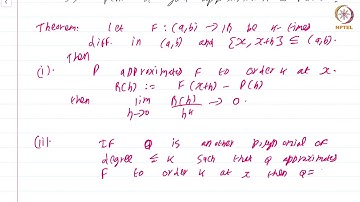 Theorem: Let F: (a,b) → IR be k-times
diff. in (a,b) and {x, x+h} ⊆ (a,b).
Then
(i). P approximates F to order k at x.
R(h) := F(x+h) - P(h)
then lim h→0 R(h)/h^k → 0.
(ii). If Q is another polynomial of
degree ≤ k such that Q approximates
F to order k at x then Q=
NPTEL